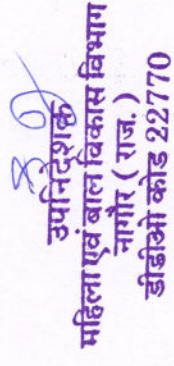 उपनिदेशक
महिला एवं बाल विकास विभाग
नागौर ( राज. )
डीडीओ कोड 22770